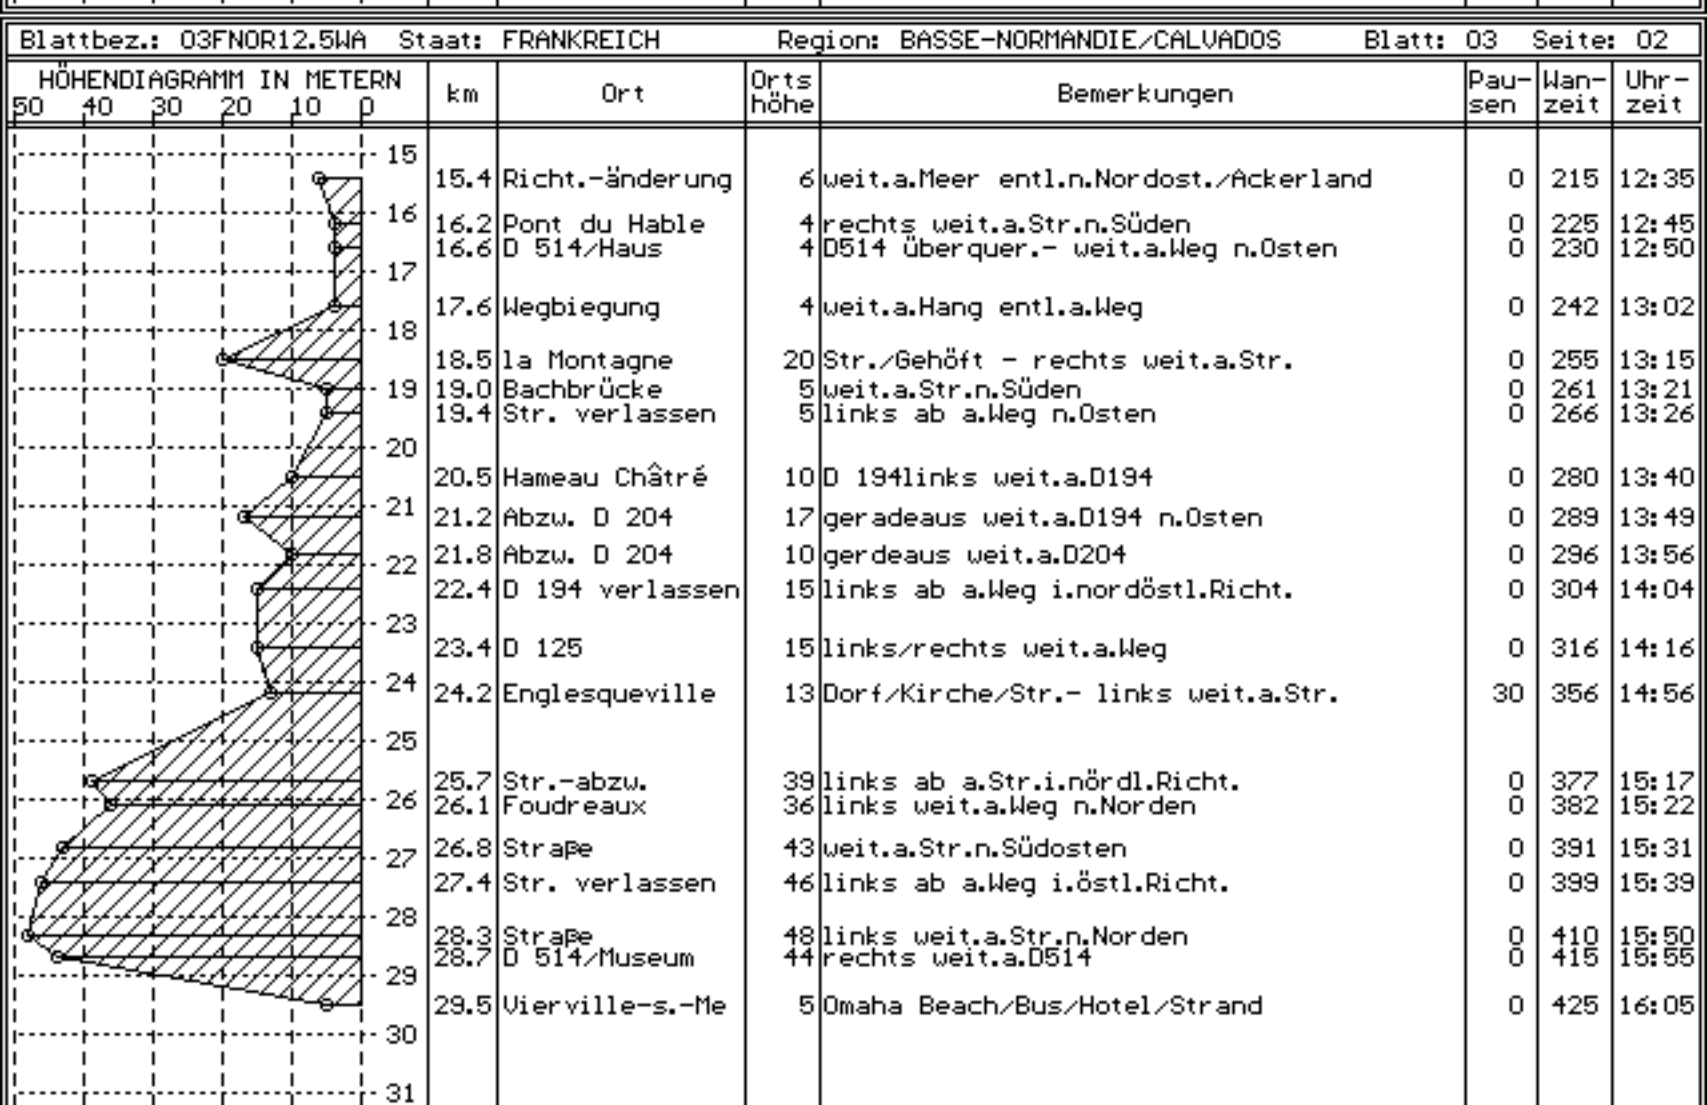 Blattbez.: 03FNOR12.5WA Staat: FRANKREICH Region: BASSE-NORMANDIE/CALVADOS Blatt: 03 Seite: 02
HÖHENDIAGRAMM IN METERN km Ort Orts höhe Bemerkungen Pau- sen Wan- zeit Uhr- zeit
50 40 30 20 10 0
15
15.4 Richt.-änderung 6 weit.a.Meer entl.n.Nordost./Ackerland 0 215 12:35
16
16.2 Pont du Hable 4 rechts weit.a.Str.n.Süden 0 225 12:45
16.6 D 514/Haus 4 D514 überquer.- weit.a.Weg n.Osten 0 230 12:50
17
17.6 Wegbiegung 4 weit.a.Hang entl.a.Weg 0 242 13:02
18
18.5 la Montagne 20 Str./Gehöft - rechts weit.a.Str. 0 255 13:15
19
19.0 Bachbrücke 5 weit.a.Str.n.Süden 0 261 13:21
19.4 Str. verlassen 5 links ab a.Weg n.Osten 0 266 13:26
20
20.5 Hameau Châtré 10 D 194links weit.a.D194 0 280 13:40
21
21.2 Abzw. D 204 17 geradeaus weit.a.D194 n.Osten 0 289 13:49
21.8 Abzw. D 204 10 gerdeaus weit.a.D204 0 296 13:56
22
22.4 D 194 verlassen 15 links ab a.Weg i.nordöstl.Richt. 0 304 14:04
23
23.4 D 125 15 links/rechts weit.a.Weg 0 316 14:16
24
24.2 Englesqueville 13 Dorf/Kirche/Str.- links weit.a.Str. 30 356 14:56
25
25.7 Str.-abzw. 39 links ab a.Str.i.nördl.Richt. 0 377 15:17
26
26.1 Foudreaux 36 links weit.a.Weg n.Norden 0 382 15:22
26.8 Straße 43 weit.a.Str.n.Südosten 0 391 15:31
27
27.4 Str. verlassen 46 links ab a.Weg i.östl.Richt. 0 399 15:39
28
28.3 Straße 48 links weit.a.Str.n.Norden 0 410 15:50
28.7 D 514/Museum 44 rechts weit.a.D514 0 415 15:55
29
29.5 Vierville-s.-Me 5 Omaha Beach/Bus/Hotel/Strand 0 425 16:05
30
31